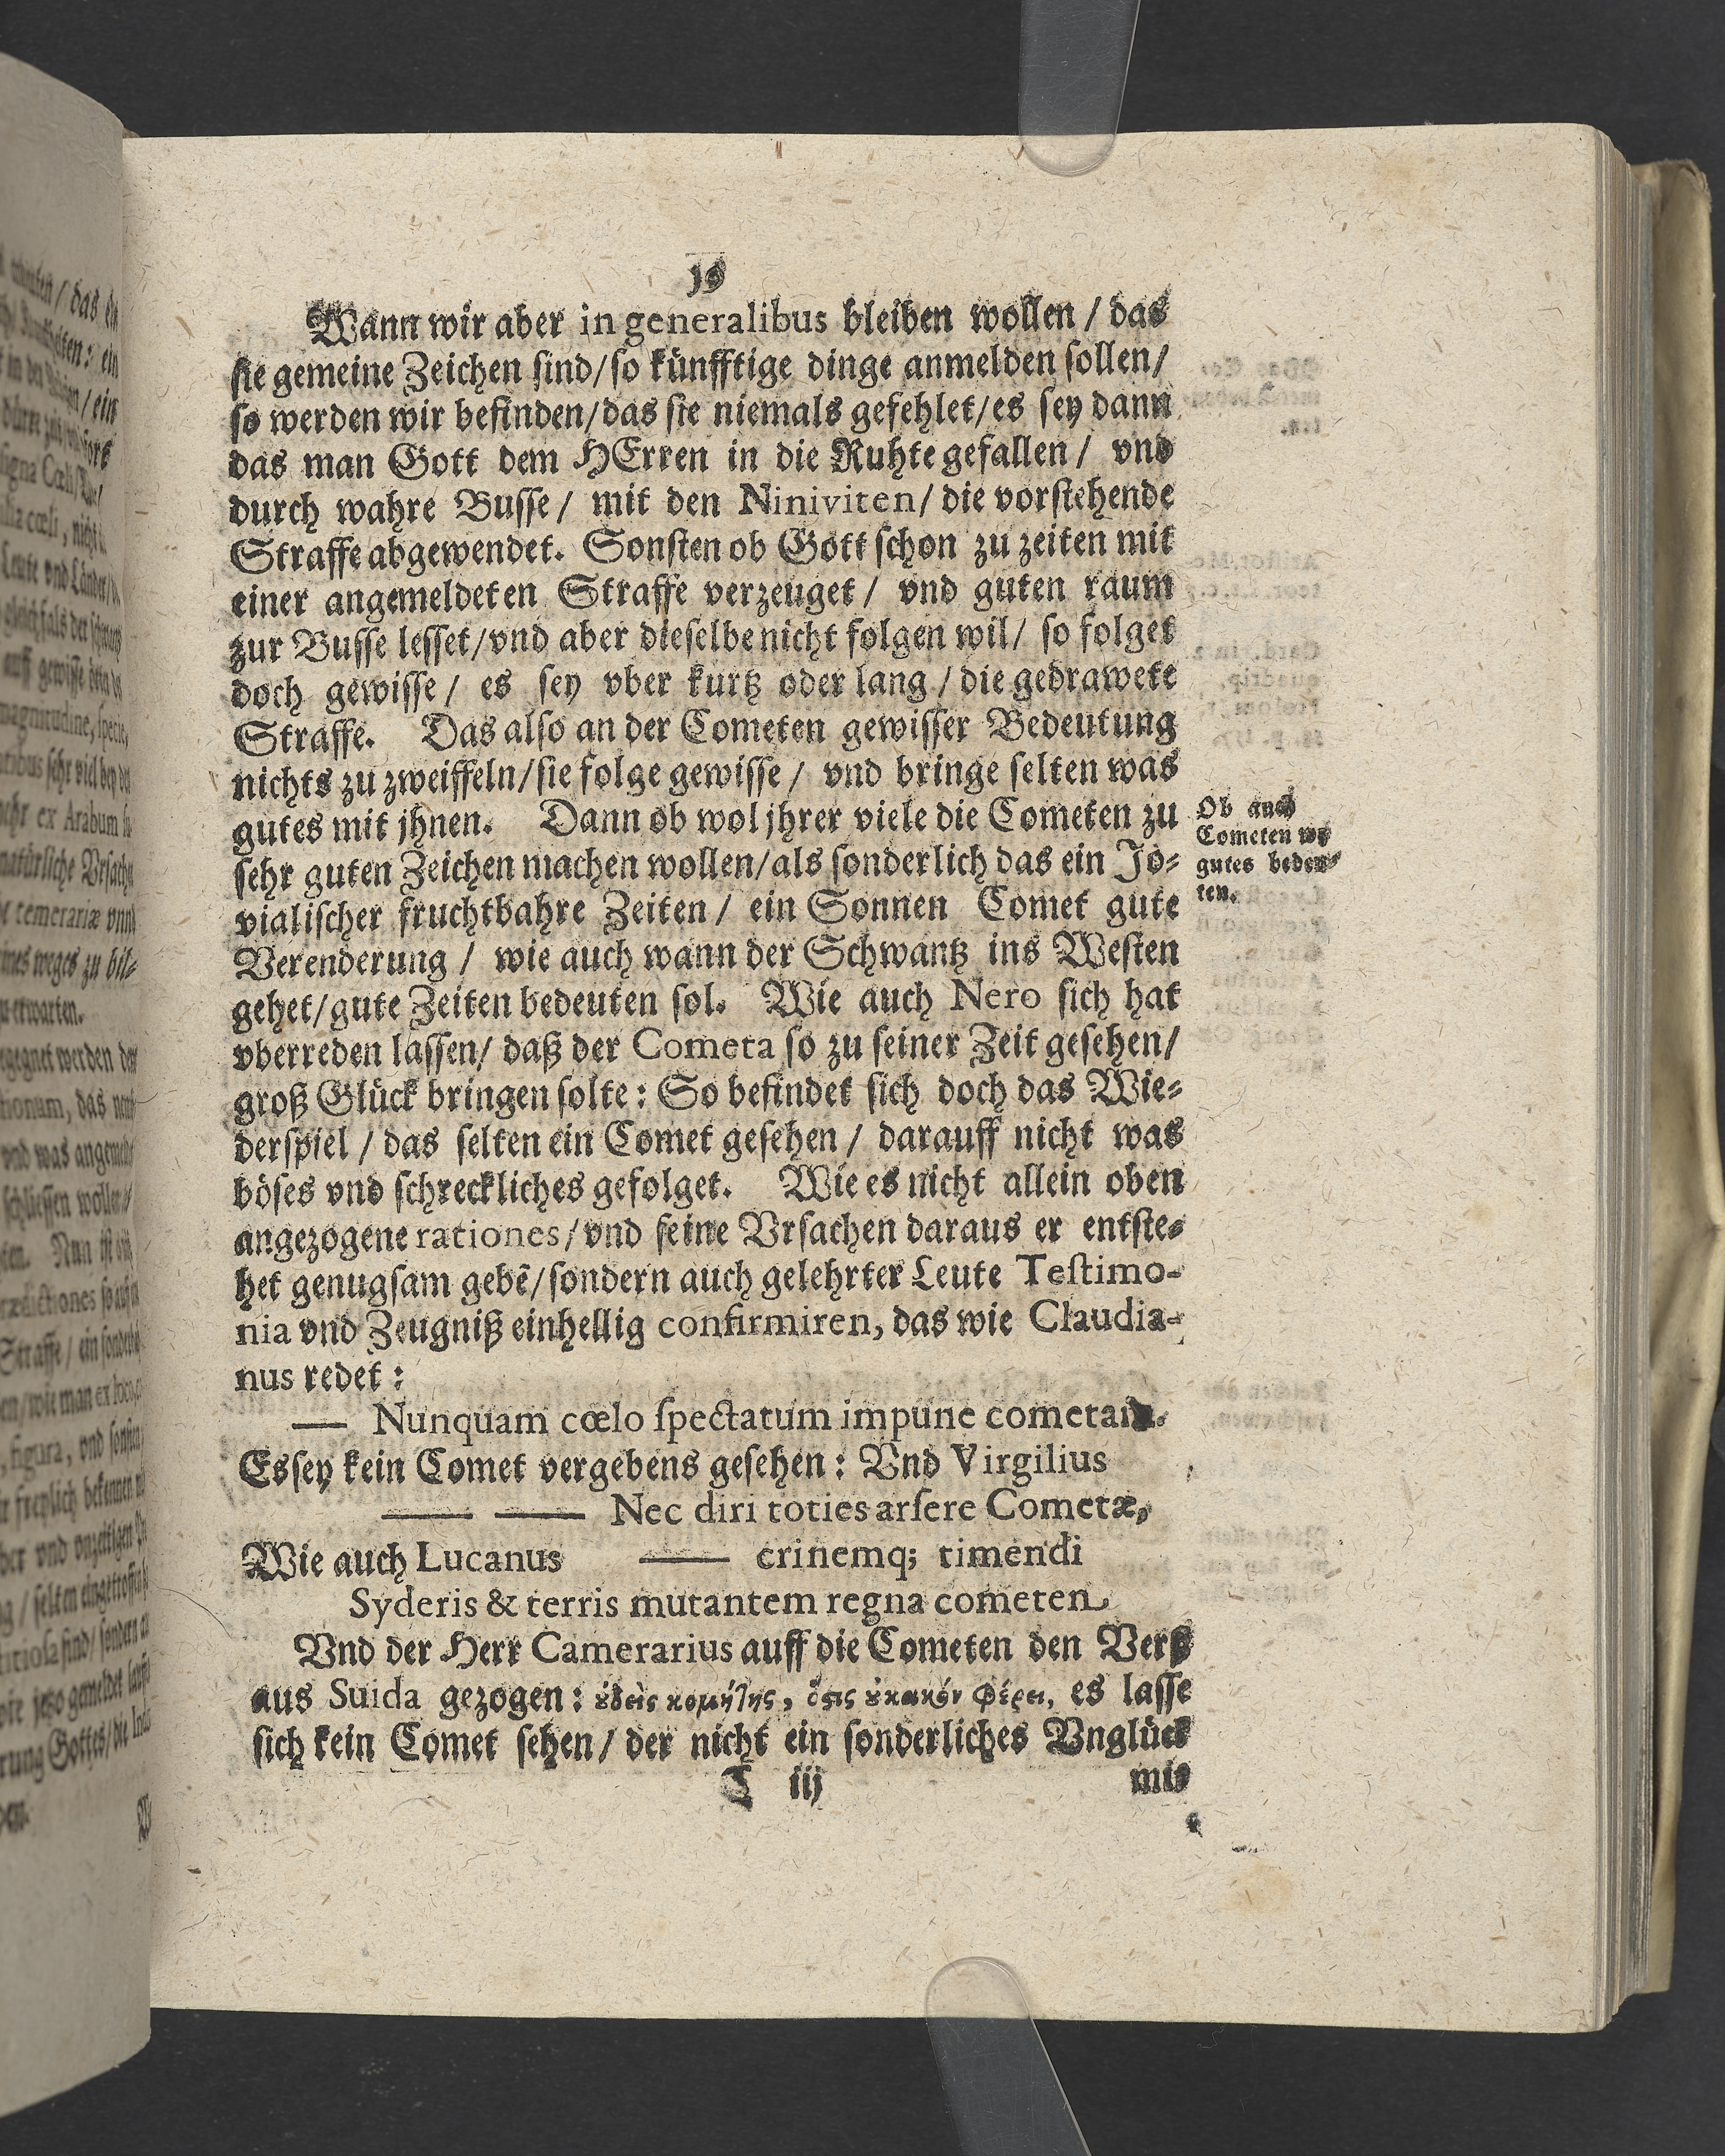 19
Wann wir aber in generalibus bleiben wollen / das
sie gemeine Zeichen sind/so künfftige dinge anmelden sollen/
so werden wir befinden/das sie niemals gefehlet/es sey dann
das man Gott dem HErren in die Ruhte gefallen / vnd
durch wahre Busse / mit den Niniviten/ die vorstehende
Straffe abgewendet. Sonsten ob Gott schon zu zeiten mit
einer angemeldeten Straffe verzeuget / vnd guten raum
zur Busse lesset/vnd aber dieselbe nicht folgen wil/ so folget
doch gewisse / es sey vber kurtz oder lang / die gedrawete
Straffe. Das also an der Cometen gewisser Bedeutung
nichts zu zweiffeln/sie folge gewisse / vnd bringe selten was
gutes mit jhnen. Dann ob wol jhrer viele die Cometen zu
sehr guten Zeichen machen wollen/als sonderlich das ein Jo-
vialischer fruchtbahre Zeiten / ein Sonnen Comet gute
Verenderung / wie auch wann der Schwantz ins Westen
gehet/gute Zeiten bedeuten sol. Wie auch Nero sich hat
vberreden lassen/ daß der Cometa so zu seiner Zeit gesehen/
groß Glück bringen solte: So befindet sich doch das Wie-
derspiel / das selten ein Comet gesehen / darauff nicht was
böses vnd schreckliches gefolget. Wie es nicht allein oben
angezogene rationes/vnd seine Vrsachen daraus er entste-
het genugsam gebē/sondern auch gelehrter Leute Testimo-
nia vnd Zeugniß einhellig confirmiren, das wie Claudia-
nus redet:
— Nunquam cœlo spectatum impune cometam.
Es sey kein Comet vergebens gesehen: Vnd Virgilius
— — Nec diri toties arsere Cometæ,
Wie auch Lucanus — crinemq; timendi
Syderis & terris mutantem regna cometen.
Vnd der Herr Camerarius auff die Cometen den Verß
aus Suida gezogen: ὐδεὶς κομήτης, ὅςις ὐ κακόν φέρει, es lasse
sich kein Comet sehen/ der nicht ein sonderliches Vnglück
C iij mit
Ob auch
Cometen
gutes bedeu-
ten.